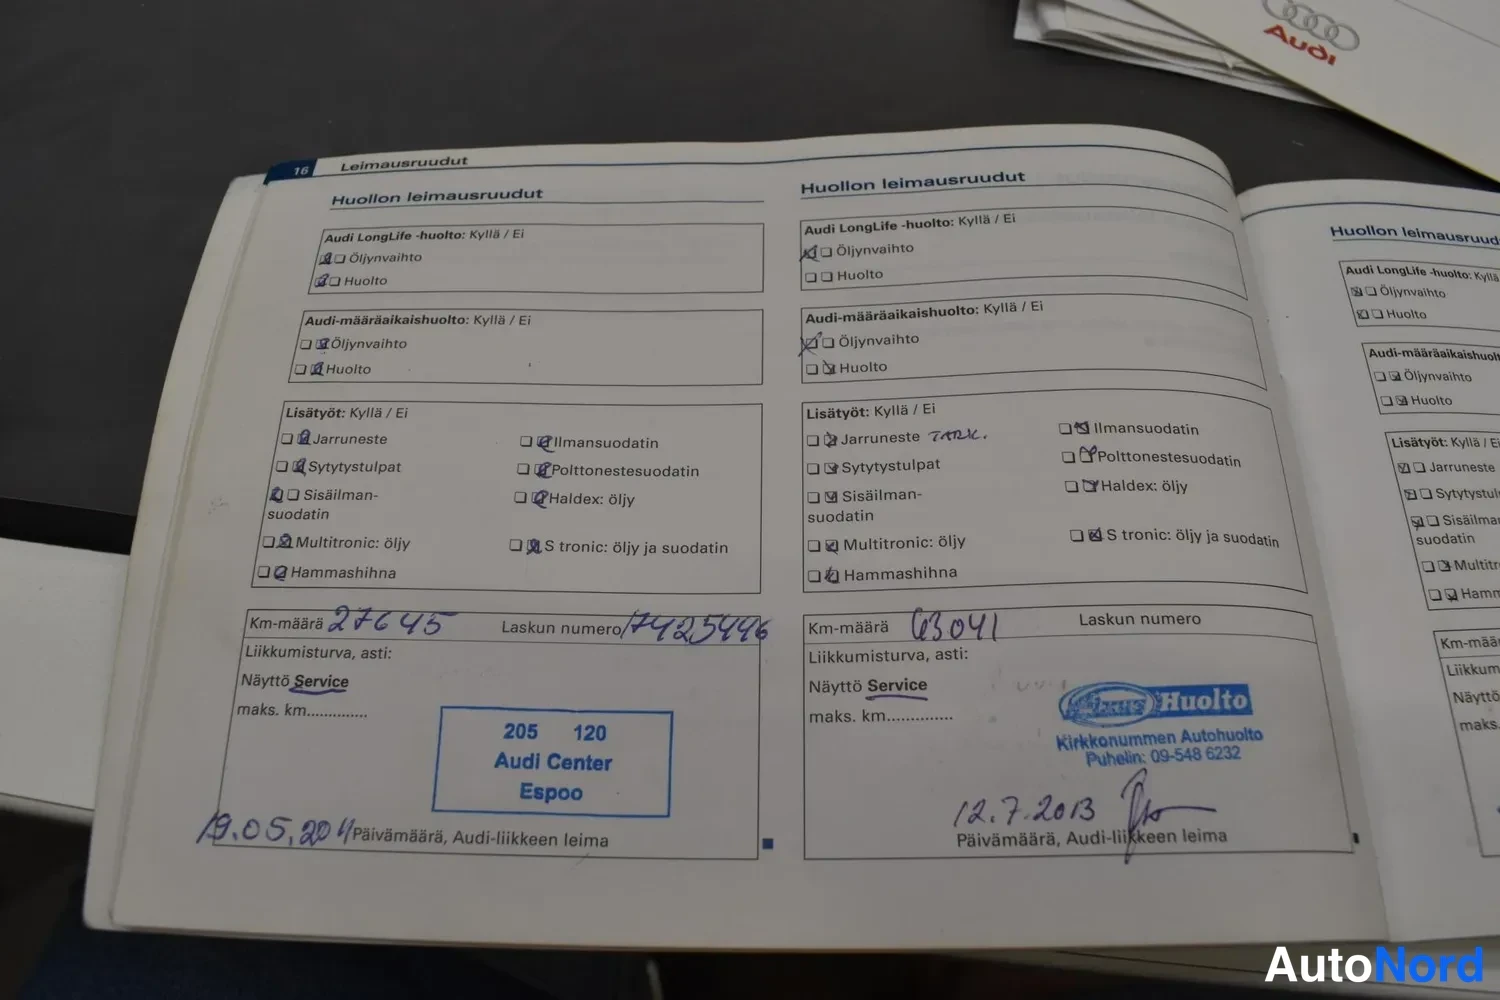 Audi
16 Leimausruudut
Huollon leimausruudut
Audi LongLife -huolto: Kyllä / Ei
Öljynvaihto
Huolto
Audi-määräaikaishuolto: Kyllä / Ei
Öljynvaihto
Huolto
Lisätyöt: Kyllä / Ei
Jarruneste
Ilmansuodatin
Sytytystulpat
Polttonestesuodatin
Sisäilman-
suodatin
Haldex: öljy
Multitronic: öljy
S tronic: öljy ja suodatin
Hammashihna
Km-määrä 27645 Laskun numero 17425446
Liikkumisturva, asti:
Näyttö Service
maks. km..............
205 120
Audi Center
Espoo
19.05.2011 Päivämäärä, Audi-liikkeen leima
Huollon leimausruudut
Audi LongLife -huolto: Kyllä / Ei
Öljynvaihto
Huolto
Audi-määräaikaishuolto: Kyllä / Ei
Öljynvaihto
Huolto
Lisätyöt: Kyllä / Ei
Jarruneste TARK.
Ilmansuodatin
Sytytystulpat
Polttonestesuodatin
Sisäilman-
suodatin
Haldex: öljy
Multitronic: öljy
S tronic: öljy ja suodatin
Hammashihna
Km-määrä 63041 Laskun numero
Liikkumisturva, asti:
Näyttö Service
maks. km..............
Huolto
Kirkkonummen Autohuolto
Puhelin: 09-548 6232
12.7.2013
Päivämäärä, Audi-liikkeen leima
Huollon leimausruud
Audi LongLife -huolto: Kyllä
Öljynvaihto
Huolto
Audi-määräaikaishuolt
Öljynvaihto
Huolto
Lisätyöt: Kyllä / E
Jarruneste
Sytytystul
Sisäilman
suodatin
Multitr
Hamm
Km-mää
Liikkum
Näyttö
maks.
AutoNord